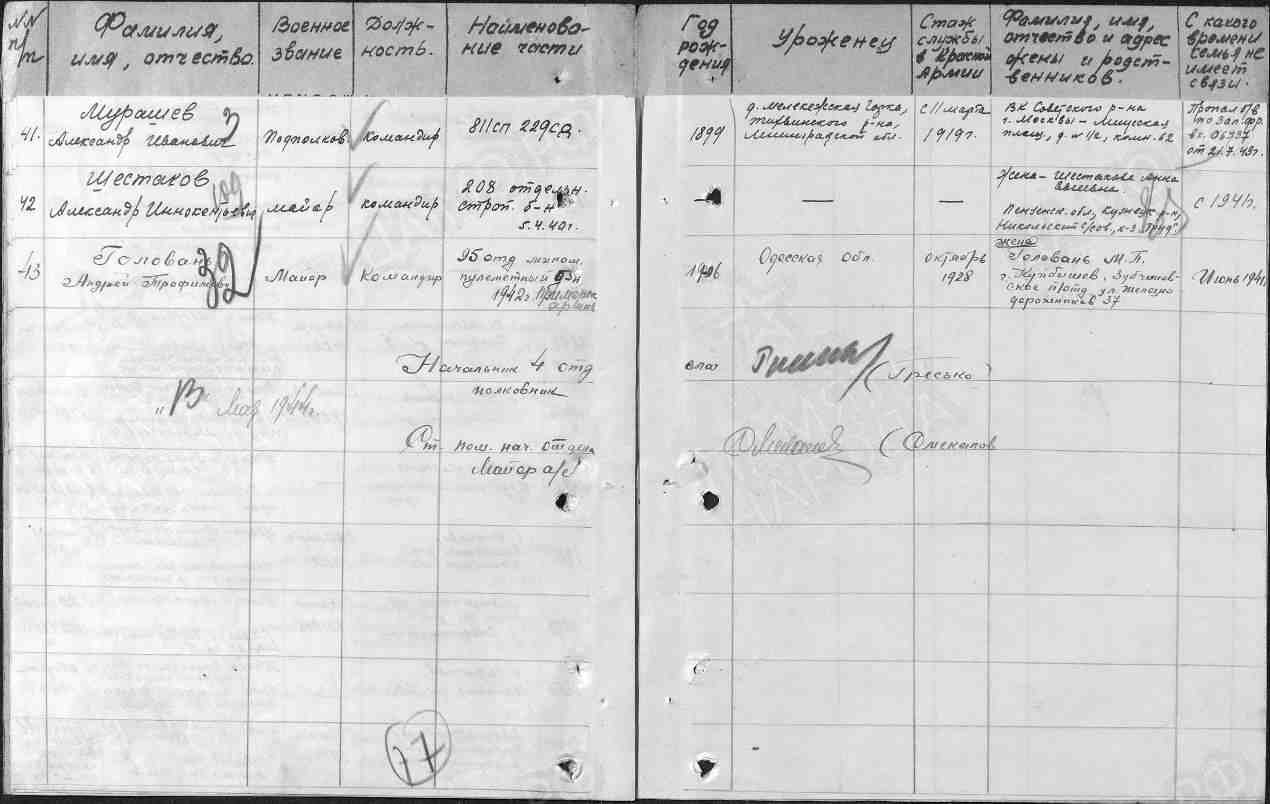 NN п/п
Фамилия, имя, отчество.
Военное звание
Долж-ность.
Наименова-ние части
Год рож-дения
Уроженец
Стаж службы в Красной Армии
Фамилия, имя, отчество и адрес жены и родст-венников.
С какого времени семья не имеет связи.
41.
Мурашев
Александр Иванович
Подполков
Командир
811сп 229сд.
1899
Тихвинского р-на,
Ленинградской обл.
с 11 марта
1919г.
РВК Советского р-на
г. Москвы – Миусская
площ, д. № 1/2, комн. 62
Пропал б/в
от 21.7.43г.
42
Шестаков
Александр Иннокентьевич
майор
командир
208 отдельн.
строт. б-н
5.4.40г.
—
—
—
Жена – Шестакова Анна
Пензенск. обл, Кузнецк р-н,
Никольский с/сов, к-з "Труд".
с 1941г.
43
Головань
Андрей Трофимович
Майор
Командир
95 отд
пулеметный
1942г. Приморск
армия
1906
Одесская обл.
октябрь
1928
жена
Головань М.П.
г. Куйбышев,
ул. Железно
дорожников 37
Июнь 1941г
Начальник 4 отд
полковник
(Гресько)
" " Мая 1944г.
Ст. пом. нач. отдела
Майор а/с
17